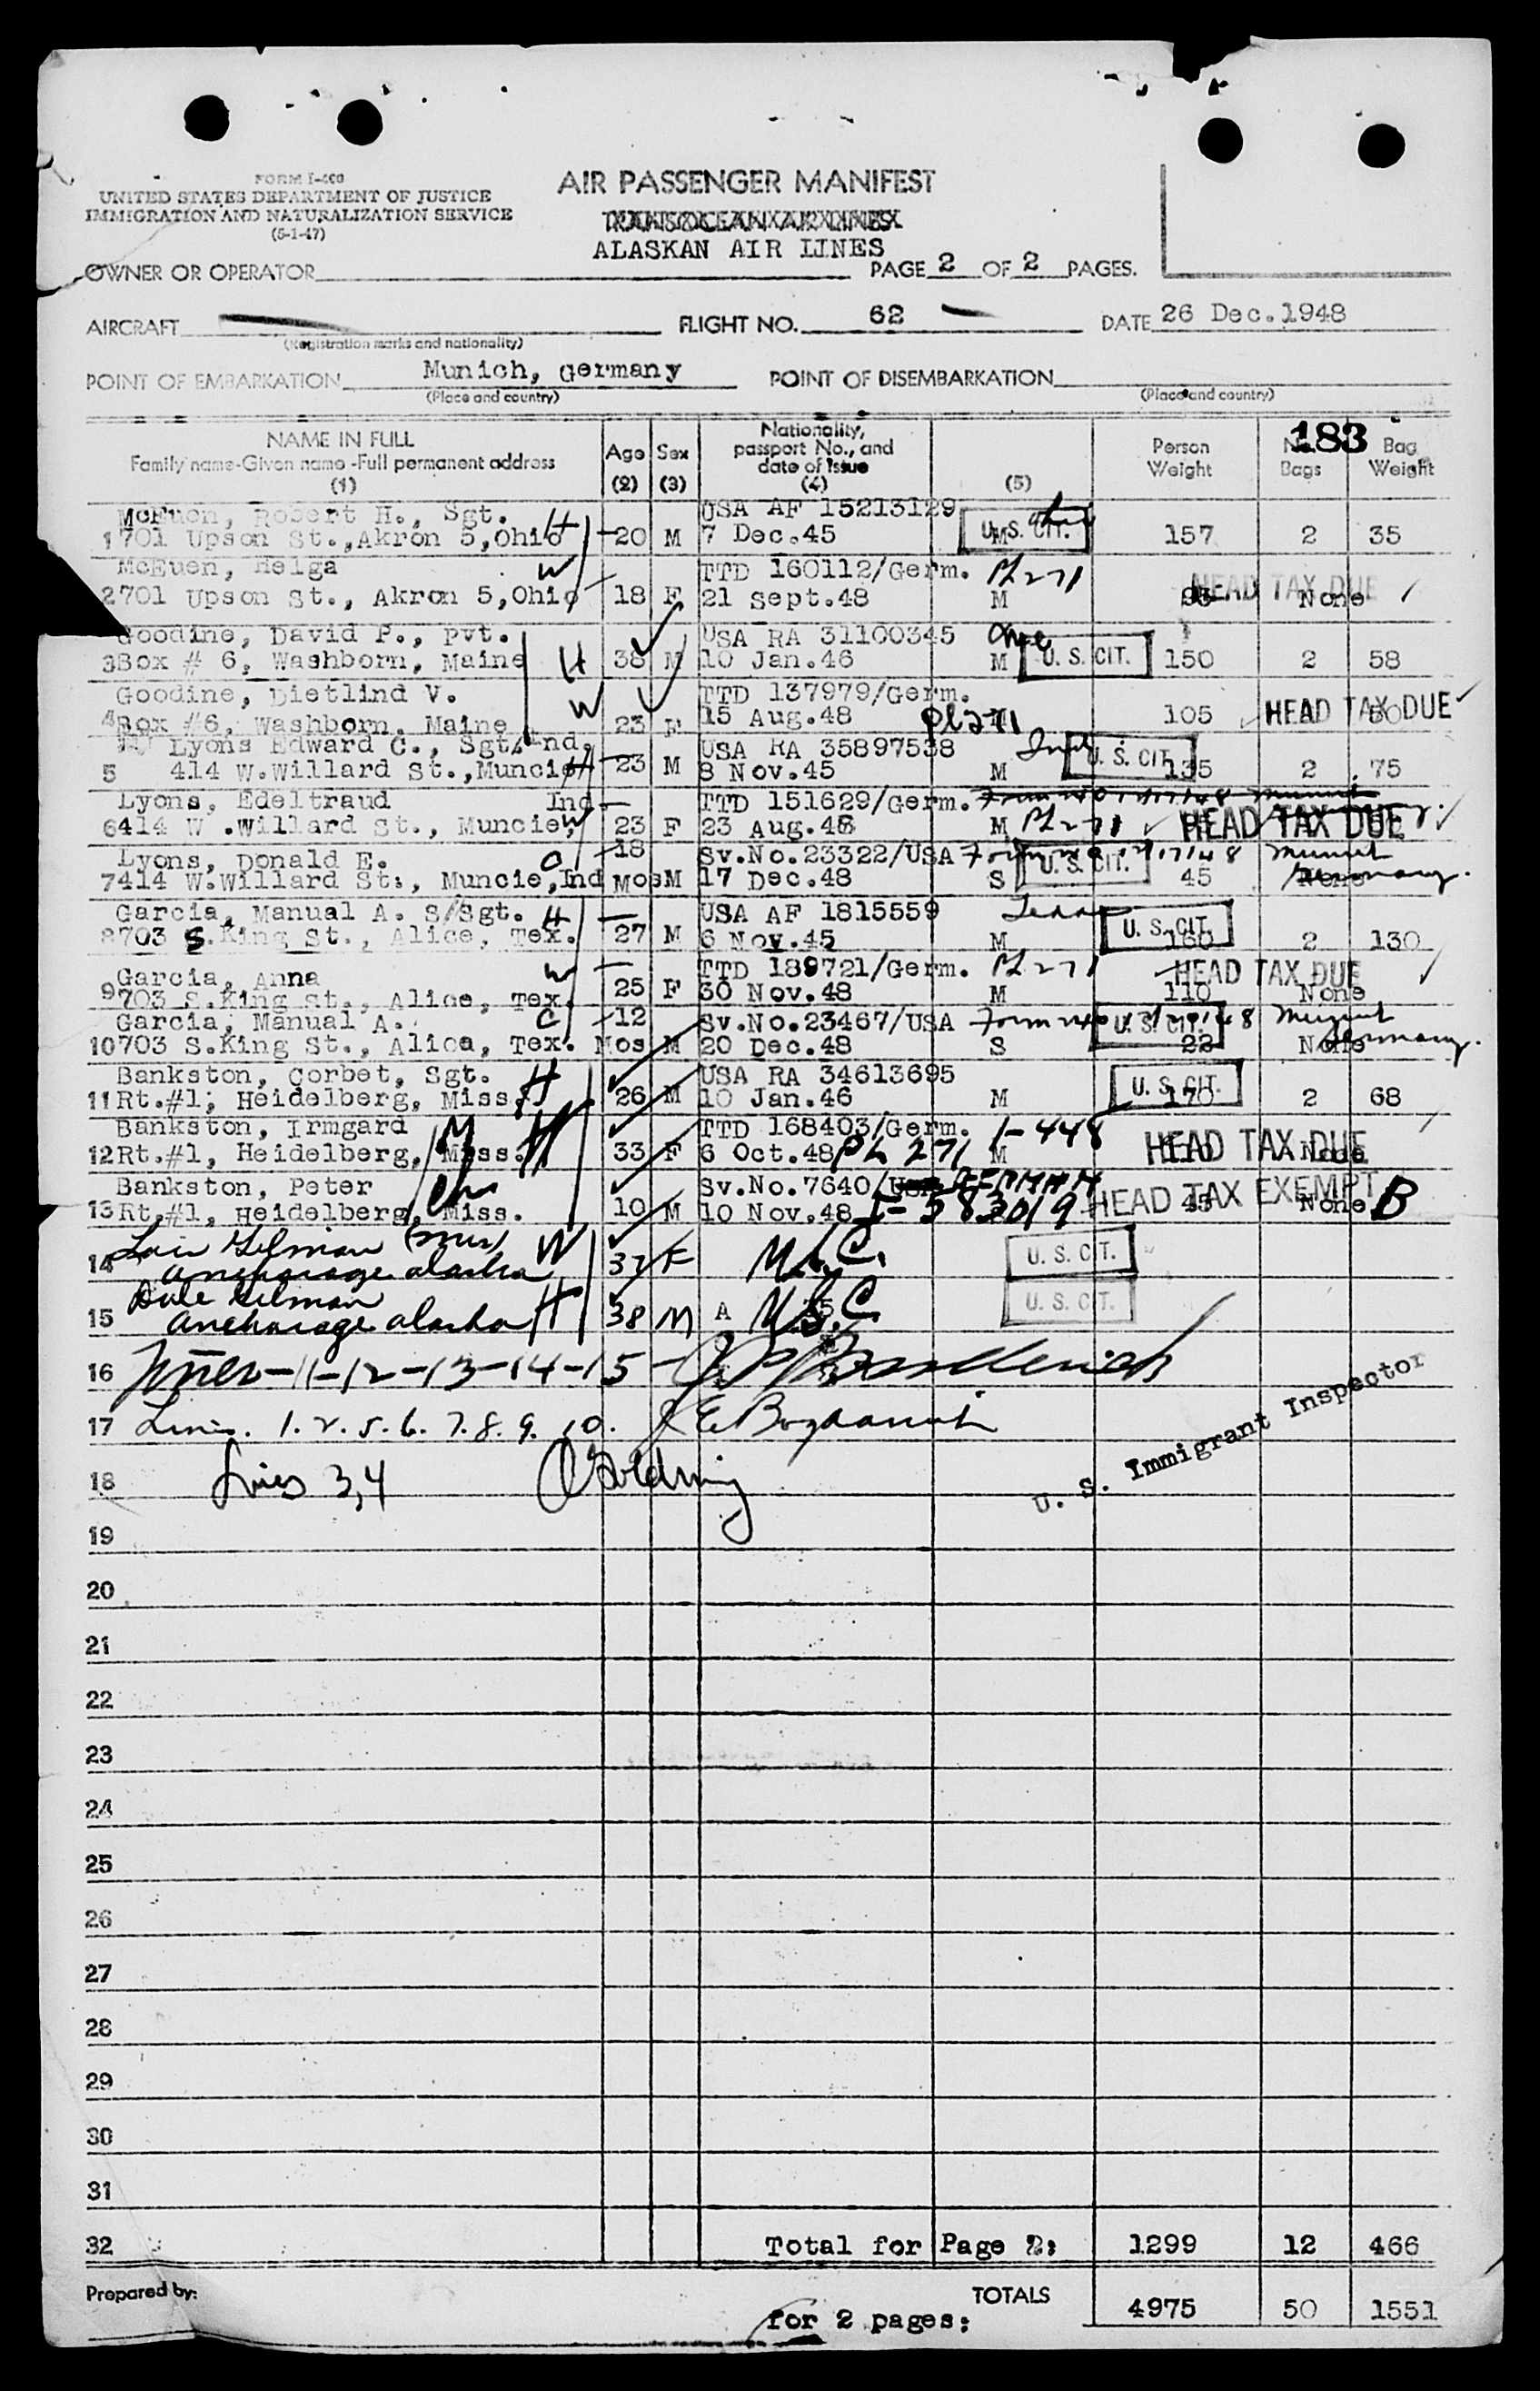 FORM I-466
UNITED STATES DEPARTMENT OF JUSTICE
IMMIGRATION AND NATURALIZATION SERVICE
(5-1-47)
AIR PASSENGER MANIFEST
TRANSOCEAN AIR LINES
ALASKAN AIR LINES
OWNER OR OPERATOR
PAGE 2 OF 2 PAGES.
AIRCRAFT
(Registration marks and nationality)
FLIGHT NO. 62
DATE 26 Dec.1948
POINT OF EMBARKATION Munich, Germany
(Place and country)
POINT OF DISEMBARKATION
(Place and country)
183
NAME IN FULL
Family name-Given name -Full permanent address
(1)
Age
(2)
Sex
(3)
Nationality,
passport No., and
date of issue
(4)
(5)
Person
Weight
Bags
Bag
Weight
McEuen, Robert H., Sgt. H USA AF 15213129
1 701 Upson St.,Akron 5,Ohio 20 M 7 Dec.45 M U. S. CIT. 157 2 35
McEuen, Helga W TTD 160112/Germ. PL 271 HEAD TAX DUE
2 701 Upson St., Akron 5,Ohio 18 F 21 Sept.48 M 93 None
Goodine, David P., Pvt. USA RA 31100345
3 Box # 6, Washborn, Maine H 38 M 10 Jan.46 M U. S. CIT. 150 2 58
Goodine, Dietlind V. W TTD 137979/Germ. PL 271 HEAD TAX DUE
4 Box #6, Washborn, Maine 23 F 15 Aug.48 105
Lyons Edward C., Sgt. Ind. USA RA 35897538 Ind U. S. CIT.
5 414 W.Willard St.,Muncie H 23 M 8 Nov.45 M 135 2 75
Lyons, Edeltraud Ind TTD 151629/Germ.
6 414 W .Willard St., Muncie, W 23 F 23 Aug.48 M PL 271 HEAD TAX DUE
Lyons, Donald E. C 18 Sv.No.23322/USA Form 240 12/17/48 Munich
7 414 W.Willard St., Muncie,Ind Mos M 17 Dec.48 S U. S. CIT. 45 None Germany.
Garcia, Manual A. S/Sgt. H USA AF 1815559 Texas
8 703 S.King St., Alice, Tex. 27 M 6 Nov.45 M U. S. CIT. 160 2 130
Garcia, Anna W TTD 189721/Germ. PL 271 HEAD TAX DUE
9 703 S.King St., Alice, Tex. 25 F 30 Nov.48 M 110 None
Garcia, Manual A. C 12 Sv.No.23467/USA Form 240 U. S. CIT. Munich
10 703 S.King St., Alica, Tex. Mos M 20 Dec.48 S 22 None Germany.
Bankston, Corbet, Sgt. H USA RA 34613695 U. S. CIT.
11 Rt.#1, Heidelberg, Miss. 26 M 10 Jan.46 M 170 2 68
Bankston, Irmgard TTD 168403/Germ. 1-448 HEAD TAX DUE
12 Rt.#1, Heidelberg, Miss. 33 F 6 Oct.48 PL 271 M 110 None
Bankston, Peter Sv.No.7640/USA GERMAN HEAD TAX EXEMPT
13 Rt.#1, Heidelberg, Miss. 10 M 10 Nov.48 I-383019 45 None B
14 Gilman (Mrs) W
Anchorage Alaska 37 F U.S.C. U. S. CIT.
15 Gilman
Anchorage Alaska H 38 M A U.S.C. U. S. CIT.
16 Lines-11-12-13-14-15
17 Lines. 1. 2. 5. 6. 7. 8. 9. 10.
18 Lines 3,4
U. S. Immigrant Inspector
19
20
21
22
23
24
25
26
27
28
29
30
31
32 Total for Page 2: 1299 12 466
Prepared by:
TOTALS
for 2 pages: 4975 50 1551